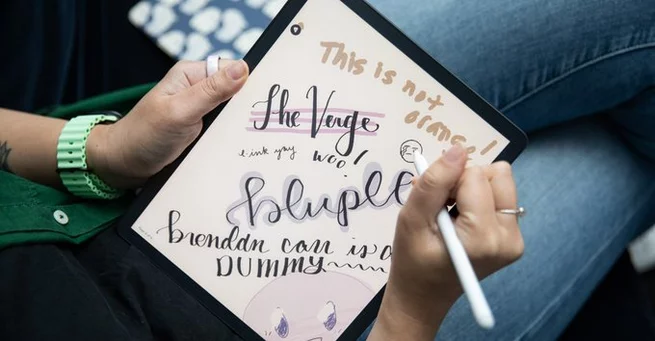 This is not
orange!
The Verge
e-ink yay woo!
blupee
brenddn can is a
DUMMY